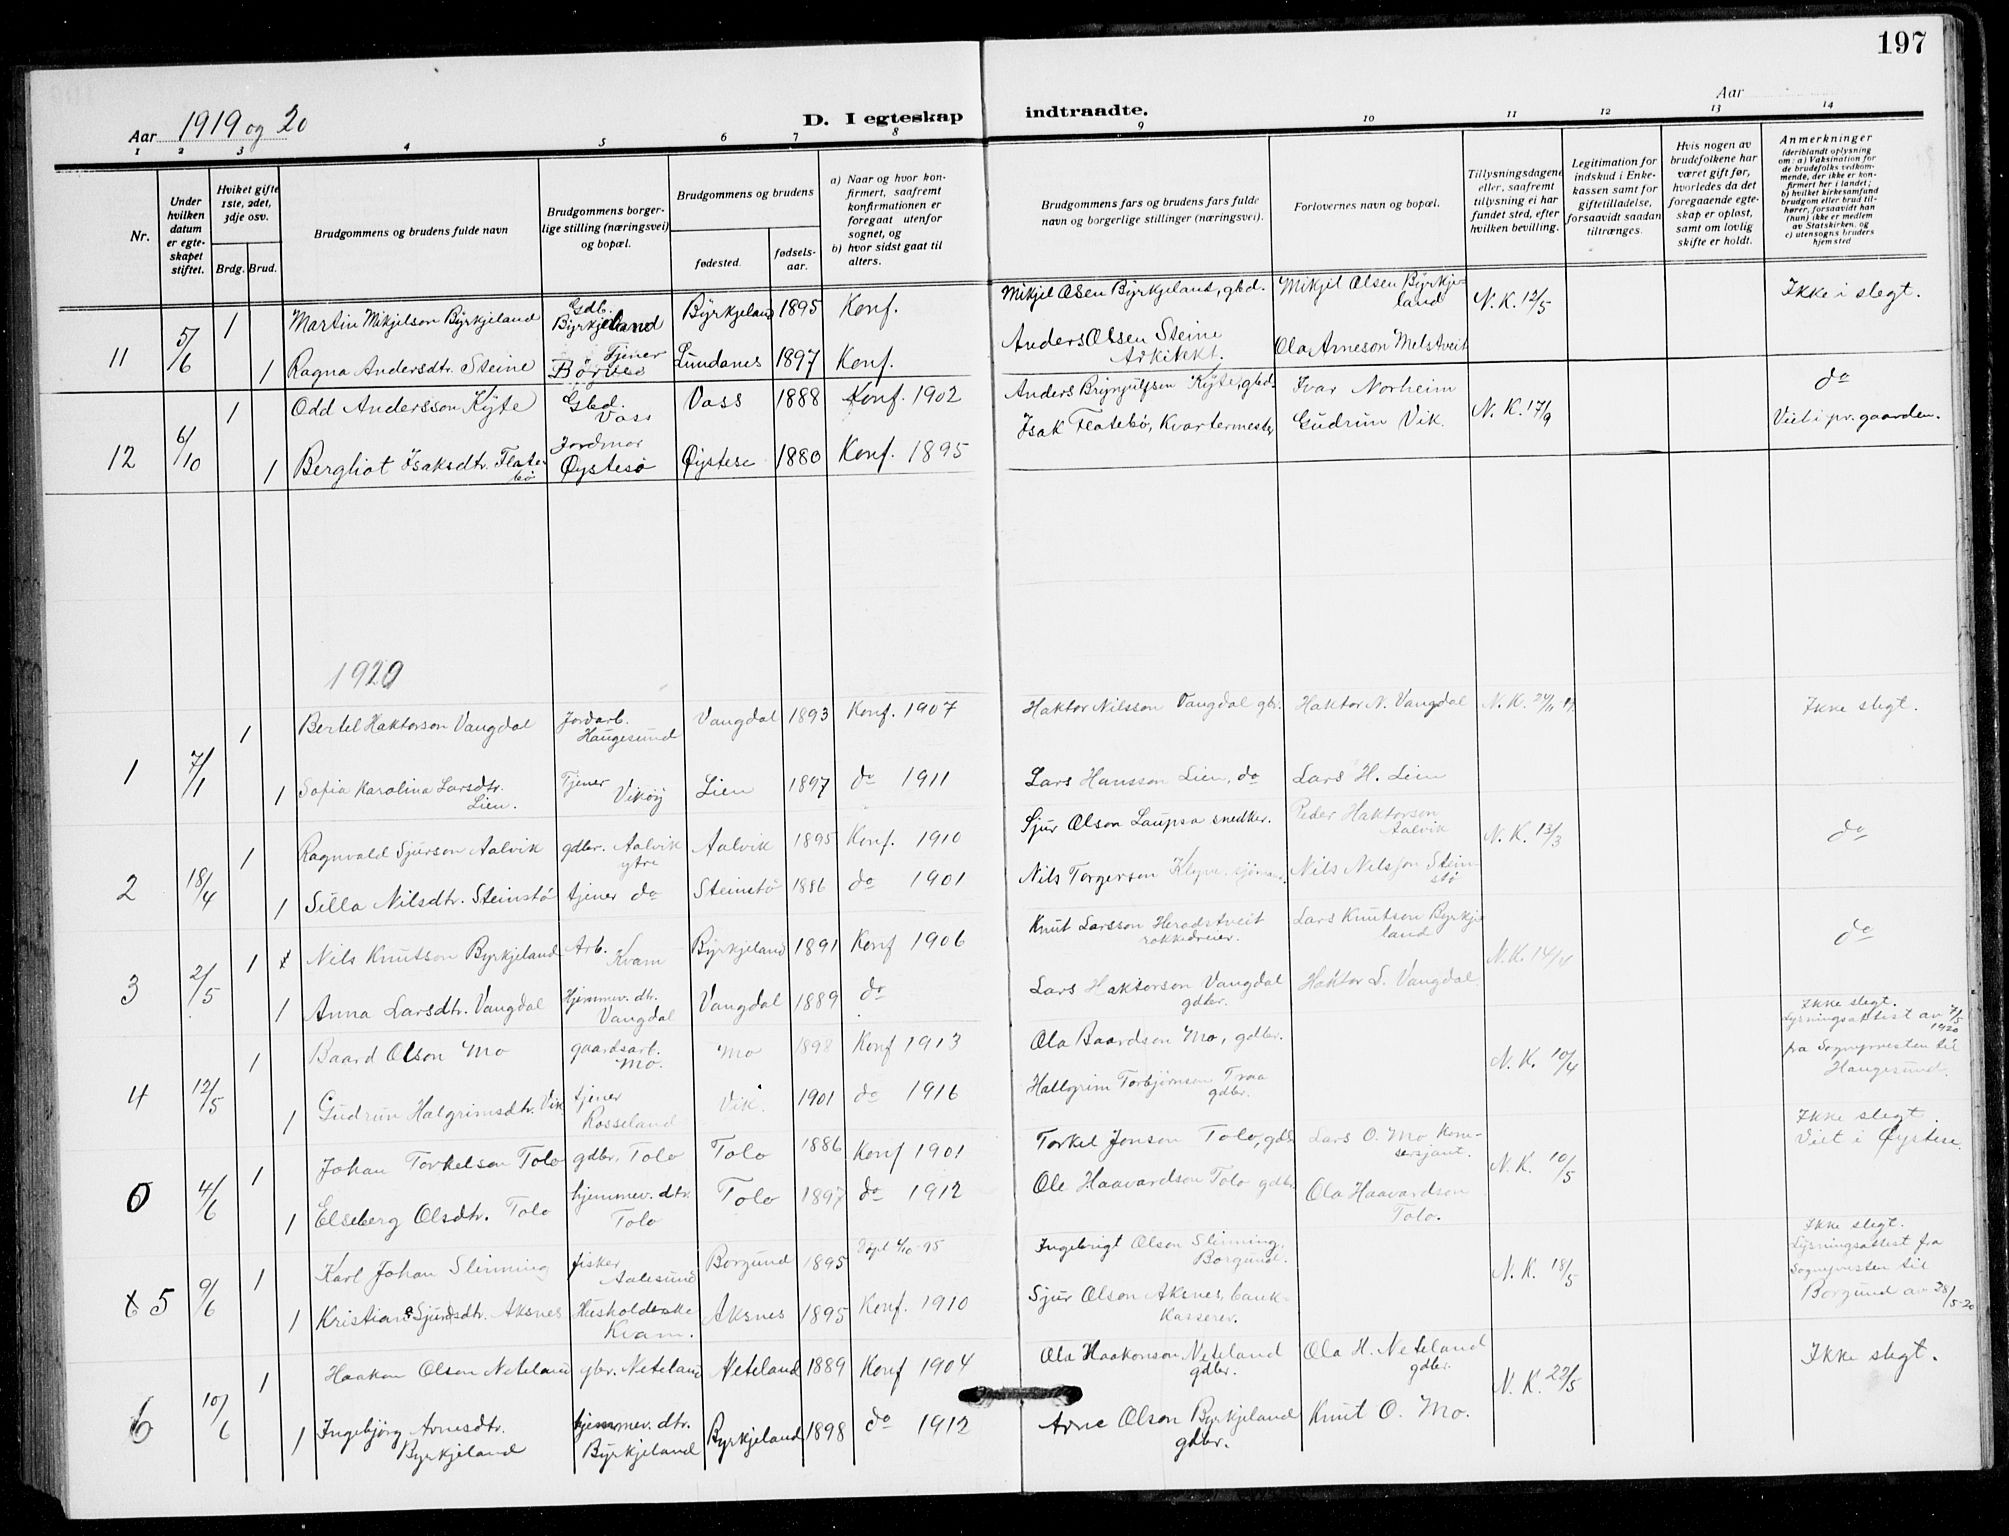 197
Aar 1919 og 20
D. I egteskap indtraadte.
Aar
1 2 3 4 5 6 7 8 9 10 11 12 13 14
Nr.
Under hvilken datum er egteskapet stiftet.
Hviket gifte 1ste, 2det, 3dje osv.
Brdg. Brud.
Brudgommens og brudens fulde navn
Brudgommens borgerlige stilling (næringsvei) og bopæl.
Brudgommens og brudens
fødested.
fødsels-aar.
a) Naar og hvor konfirmert, saafremt konfirmationen er foregaat utenfor sognet, og
b) hvor sidst gaat til alters.
Brudgommens fars og brudens fars fulde navn og borgerlige stillinger (næringsvei).
Forlovernes navn og bopæl.
Tillysningsdagene eller, saafremt tillysning ei har fundet sted, efter hvilken bevilling.
Legitimation for indskud i Enkekassen samt for giftetilladelse, forsaavidt saadan tiltrænges.
Hvis nogen av brudefolkene har været gift før, hvorledes da det foregaaende egteskap er opløst, samt om lovlig skifte er holdt.
Anmerkninger
(deriblandt oplysning om: a) Vaksination for de brudefolks vedkommende, der ikke er konfirmert her i landet; b) hvilket kirkesamfund brudgom eller brud tilhører, forsaavidt han (hun) ikke er medlem av Statskirken, og c) utensogns bruders hjemsted
11 5/6 1 Martin Mikjelson Byrkjeland Gdb. Byrkjeland Byrkjeland 1895 Konf. Mikjel Olsen Byrkjeland, gbd. Mikjel Olsen Byrkjeland N. K. 12/5 Ikke i slegt.
1 Ragna Andersdtr. Steine Tjener Børvee Lundanes 1897 Konf. Anders Olsen Steine Arkitekt. Ola Arneson Melstveit
12 6/10 1 Odd Andersson Kyte Gbd. Voss Voss 1888 Konf. 1902 Anders Brynjulfsen Kyte, gbd. Ivar Norheim N. K. 17/9 do
1 Bergliot Isaksdtr. Flatebø Jordmor Øystesø Øystese 1880 Konf. 1895 Isak Flatebø, Kvartermester Gudrun Vik. Viet i pr. gaarden.
1920
1 7/1 1 Bertel Haktorson Vangdal Jordarb. Haugesund Vangdal 1893 Konf. 1907 Haktor Nilsson Vangdal gbr. Haktor N. Vangdal N. K. 24/11 19. Ikke slegt.
1 Sofia Karolina Larsdtr. Lien. Tjener Vikøy Lien 1897 do 1911 Lars Hansson Lien, do Lars H. Lein
2 18/4 1 Ragnvald Sjurson Aalvik gdbr. Aalvik ytre Aalvik 1895 Konf. 1910 Sjur Olson Laupsa snedker. Peder Haktorson Aalvik N. K. 13/3 do
1 Silla Nilsdtr. Steinstø tjener do Steinstø 1886 do 1901 Nils Torgerson Klyve, sjømand. Nils Nilsson Steinstø
3 2/5 1 Nils Knutson Byrkjeland Arb. Kvam Byrkjeland 1891 Konf 1906 Knut Larsson Heradstveit rokkedreier. Lars Knutson Byrkjeland N. K. 14/4 do
1 Anna Larsdtr. Vangdal Hjemmev. dtr. Vangdal Vangdal 1889 do Lars Haktorson Vangdal gdbr. Haktor L. Vangdal.
4 12/5 1 Baard Olson Mo gaardsarb. Mo. Mo 1898 Konf 1913 Ola Baardson Mo, gdbr. N. K. 10/4 Ikke slegt. Lysningsattest av 7/5 1920 fra Sognepresten til Haugesund.
1 Gudrun Halgrimsdtr. Vik tjener Rosseland Vik. 1901 do 1916 Hallgrim Torbjørnson Traa gdbr.
5 4/6 1 Johan Torkelson Tolo gdbr. Tolo Tolo 1886 Konf 1901 Torkel Jonson Tolo, gdbr Lars O. Mo Kom-sersjant. N. K. 10/5 Ikke slegt. Viet i Øystese
1 Elseberg Olsdtr. Tolo hjemmev. dtr Tolo Tolo 1897 do 1912 Ole Haavardson Tolo gdbr. Ola Haavardson Tolo.
5 9/6 1 Karl Johan Slinning fisker Aalesund Borgund 1895 Døpt 6/10-95 Ingebrigt Olson Slinning, Borgund. N. K. 18/5 Ikke slegt. Lysningsattest fra Sognepresten til Borgund av 28/5-20
1 Kristiane Sjursdtr. Aksnes Husholderske Kvam. Aksnes 1895 Konf. 1910 Sjur Olson Aksnes, bank-kasserer.
6 10/6 1 Haakon Olson Neteland gbr. Neteland Neteland 1889 Konf 1904 Ola Haakonson Neteland gdbr. Ola H. Neteland gdbr. N. K. 22/5 Ikke slegt.
1 Ingebjörg Arnesdtr. Byrkjeland hjemmev. dtr. Byrkjeland Byrkjeland 1898 do 1912 Arne Olson Byrkjeland gdbr. Knut O. Mo.